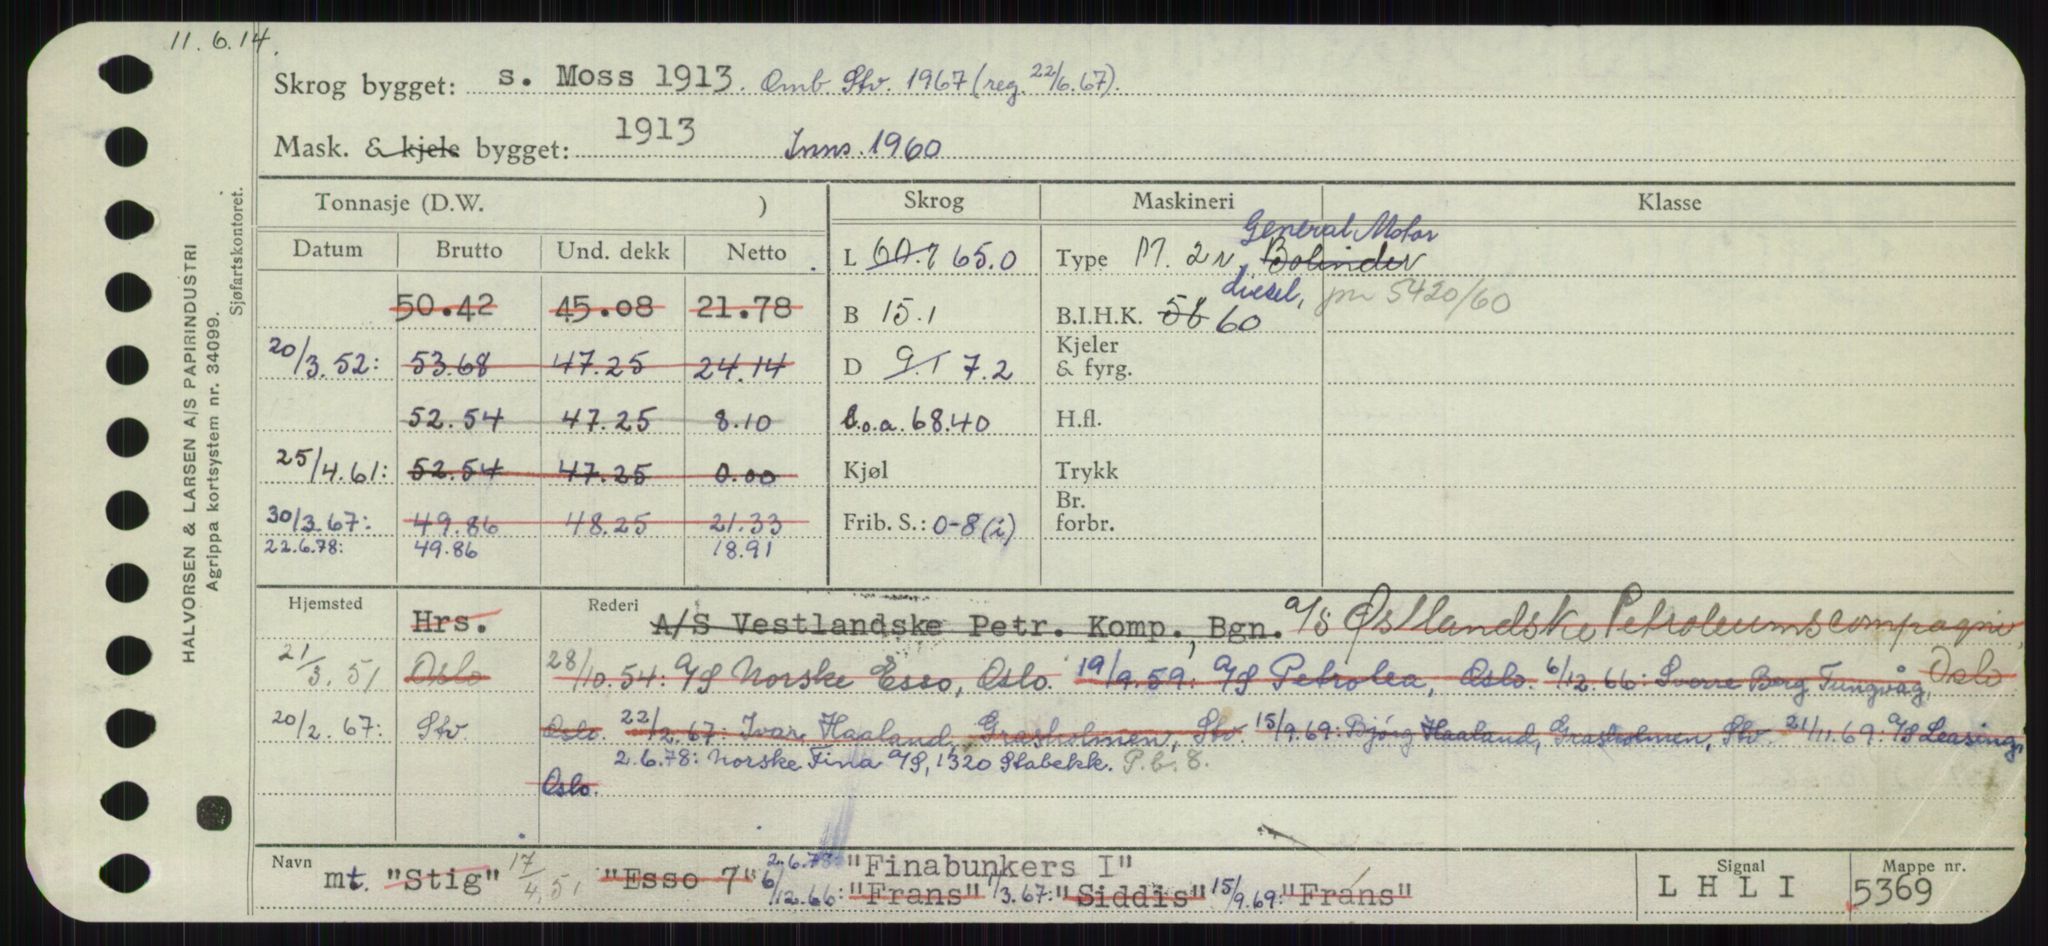 11.6.14.
Skrog bygget: s. Moss 1913. Omb. Stv. 1967 (reg. 22/6.67).
Mask. & kjele bygget: 1913 Inns. 1960
Tonnasje (D.W. ) Skrog Maskineri Klasse
Datum Brutto Und. dekk Netto
L 60.7 65.0 Type M. 2 v. Bolinder General Motor
50.42 45.08 21.78 B 15.1 B.I.H.K. 56 60 diesel, jnr 5420/60
20/3.52: 53.68 47.25 24.14 D 9.1 7.2 Kjeler & fyrg.
52.54 47.25 8.10 L.o.a. 68.40 H.fl.
25/4.61: 52.54 47.25 0.00 Kjøl Trykk
30/3.67: 49.86 48.25 21.33 Frib. S.: 0-8 (i) Br. forbr.
22.6.78: 49.86 18.91
Hjemsted Hrs. Rederi A/S Vestlandske Petr. Komp., Bgn. A/S Østlandske Petroleumscompagni, Oslo
21/3.51 Oslo 28/10.54: A/S Norske Esso, Oslo. 19/9.59: A/S Petrolea, Oslo. 6/12.66: Sverre Berg Tungvåg,
20/2.67: Stv Oslo. 22/2.67: Ivar Haaland, Grasholmen, Stv. 15/9.69: Bjørg Haaland, Grasholmen, Stv. 21/11.69: A/S Leasing,
2.6.78: Norske Fina A/S, 1320 Stabekk. P.b. 8.
Oslo.
Navn mt. "Stig" 17/4.51 "Esso 7" 2.6.78: "Finabunkers I" Signal LHLI Mappe nr. 5369
6/12.66: "Frans" 1/3.67: "Siddis" 15/9.69: "Frans"
HALVORSEN & LARSEN A/S PAPIRINDUSTRI
Agrippa kortsystem nr. 34099.
Sjøfartskontoret.